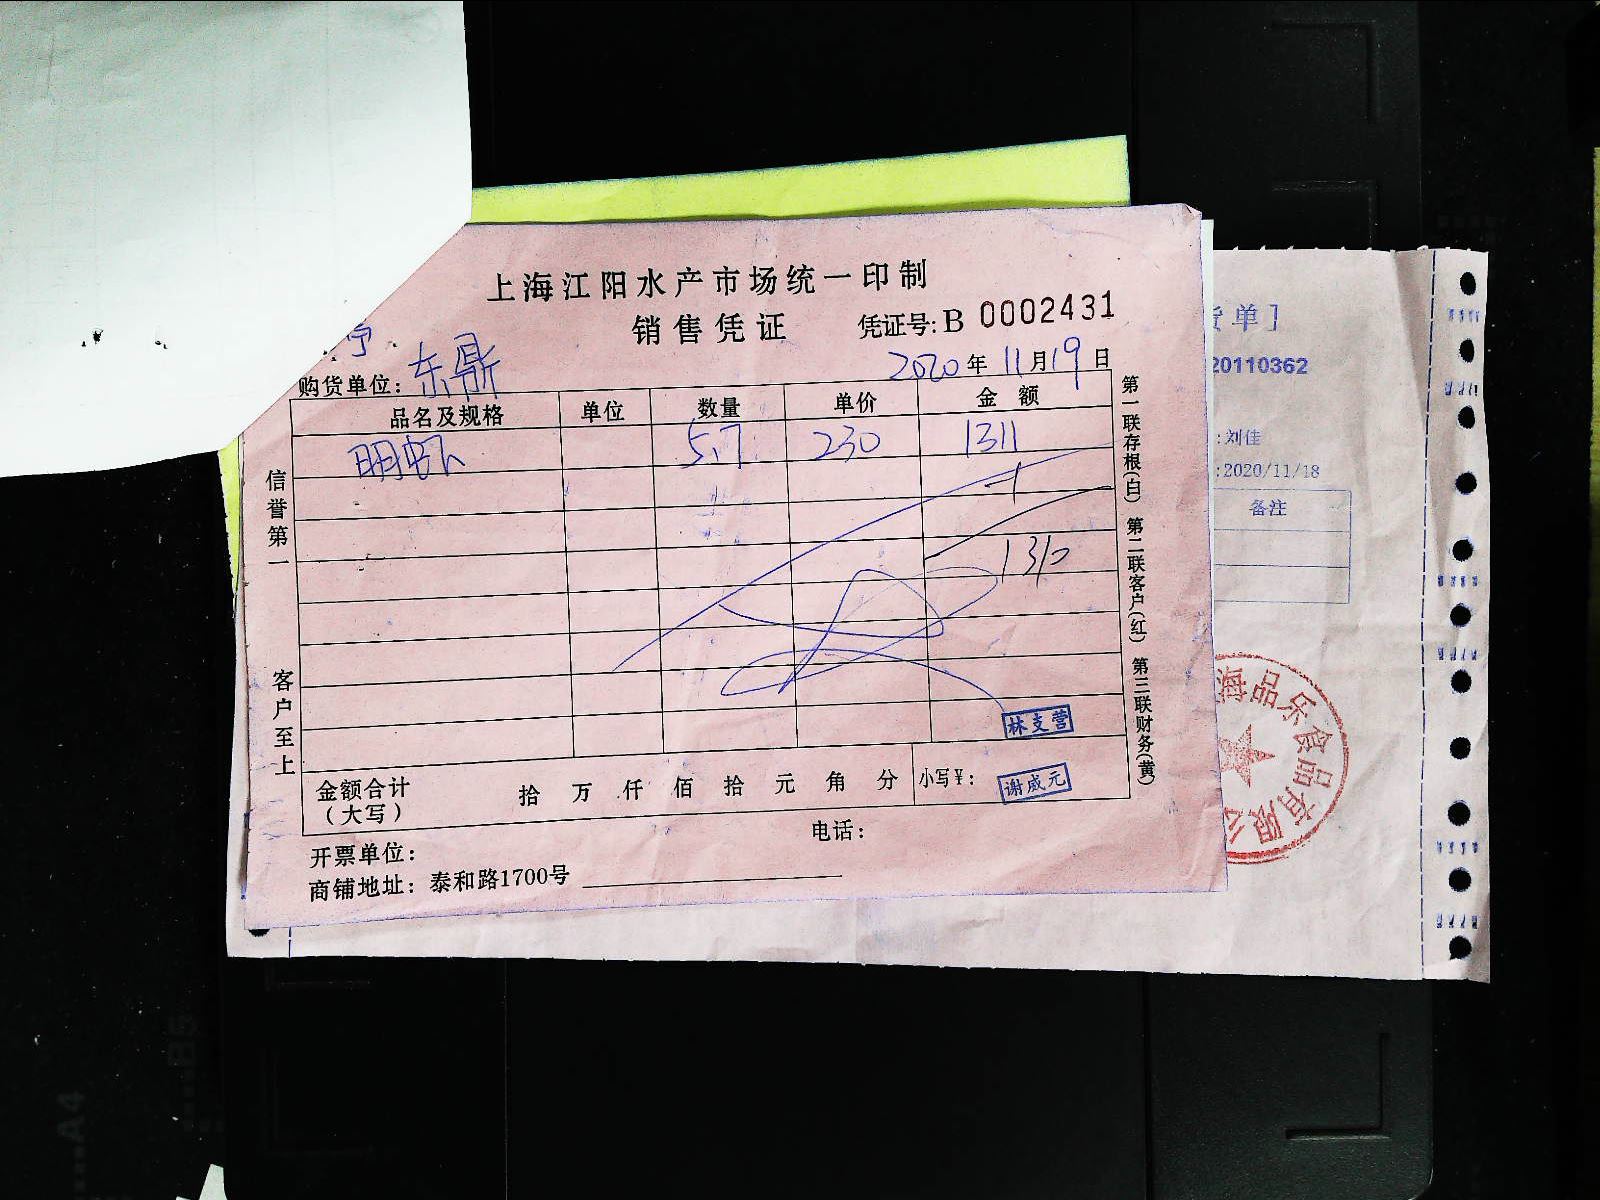 上海江阳水产市场统一印制
销售凭证 凭证号: B 0002431
购货单位: 东鼎 2020年11月19日
品名及规格 单位 数量 单价 金额
明虾 5.7 230 1311
-1
1310
信誉第一
客户至上
第一联存根(白) 第二联客户(红) 第三联财务(黄)
林支营
金额合计(大写) 拾 万 仟 佰 拾 元 角 分 小写¥:
谢咸元
电话:
开票单位:
商铺地址: 泰和路1700号
货单]
20110362
:刘佳
:2020/11/18
备注
海品乐食品有限公
A4
B5